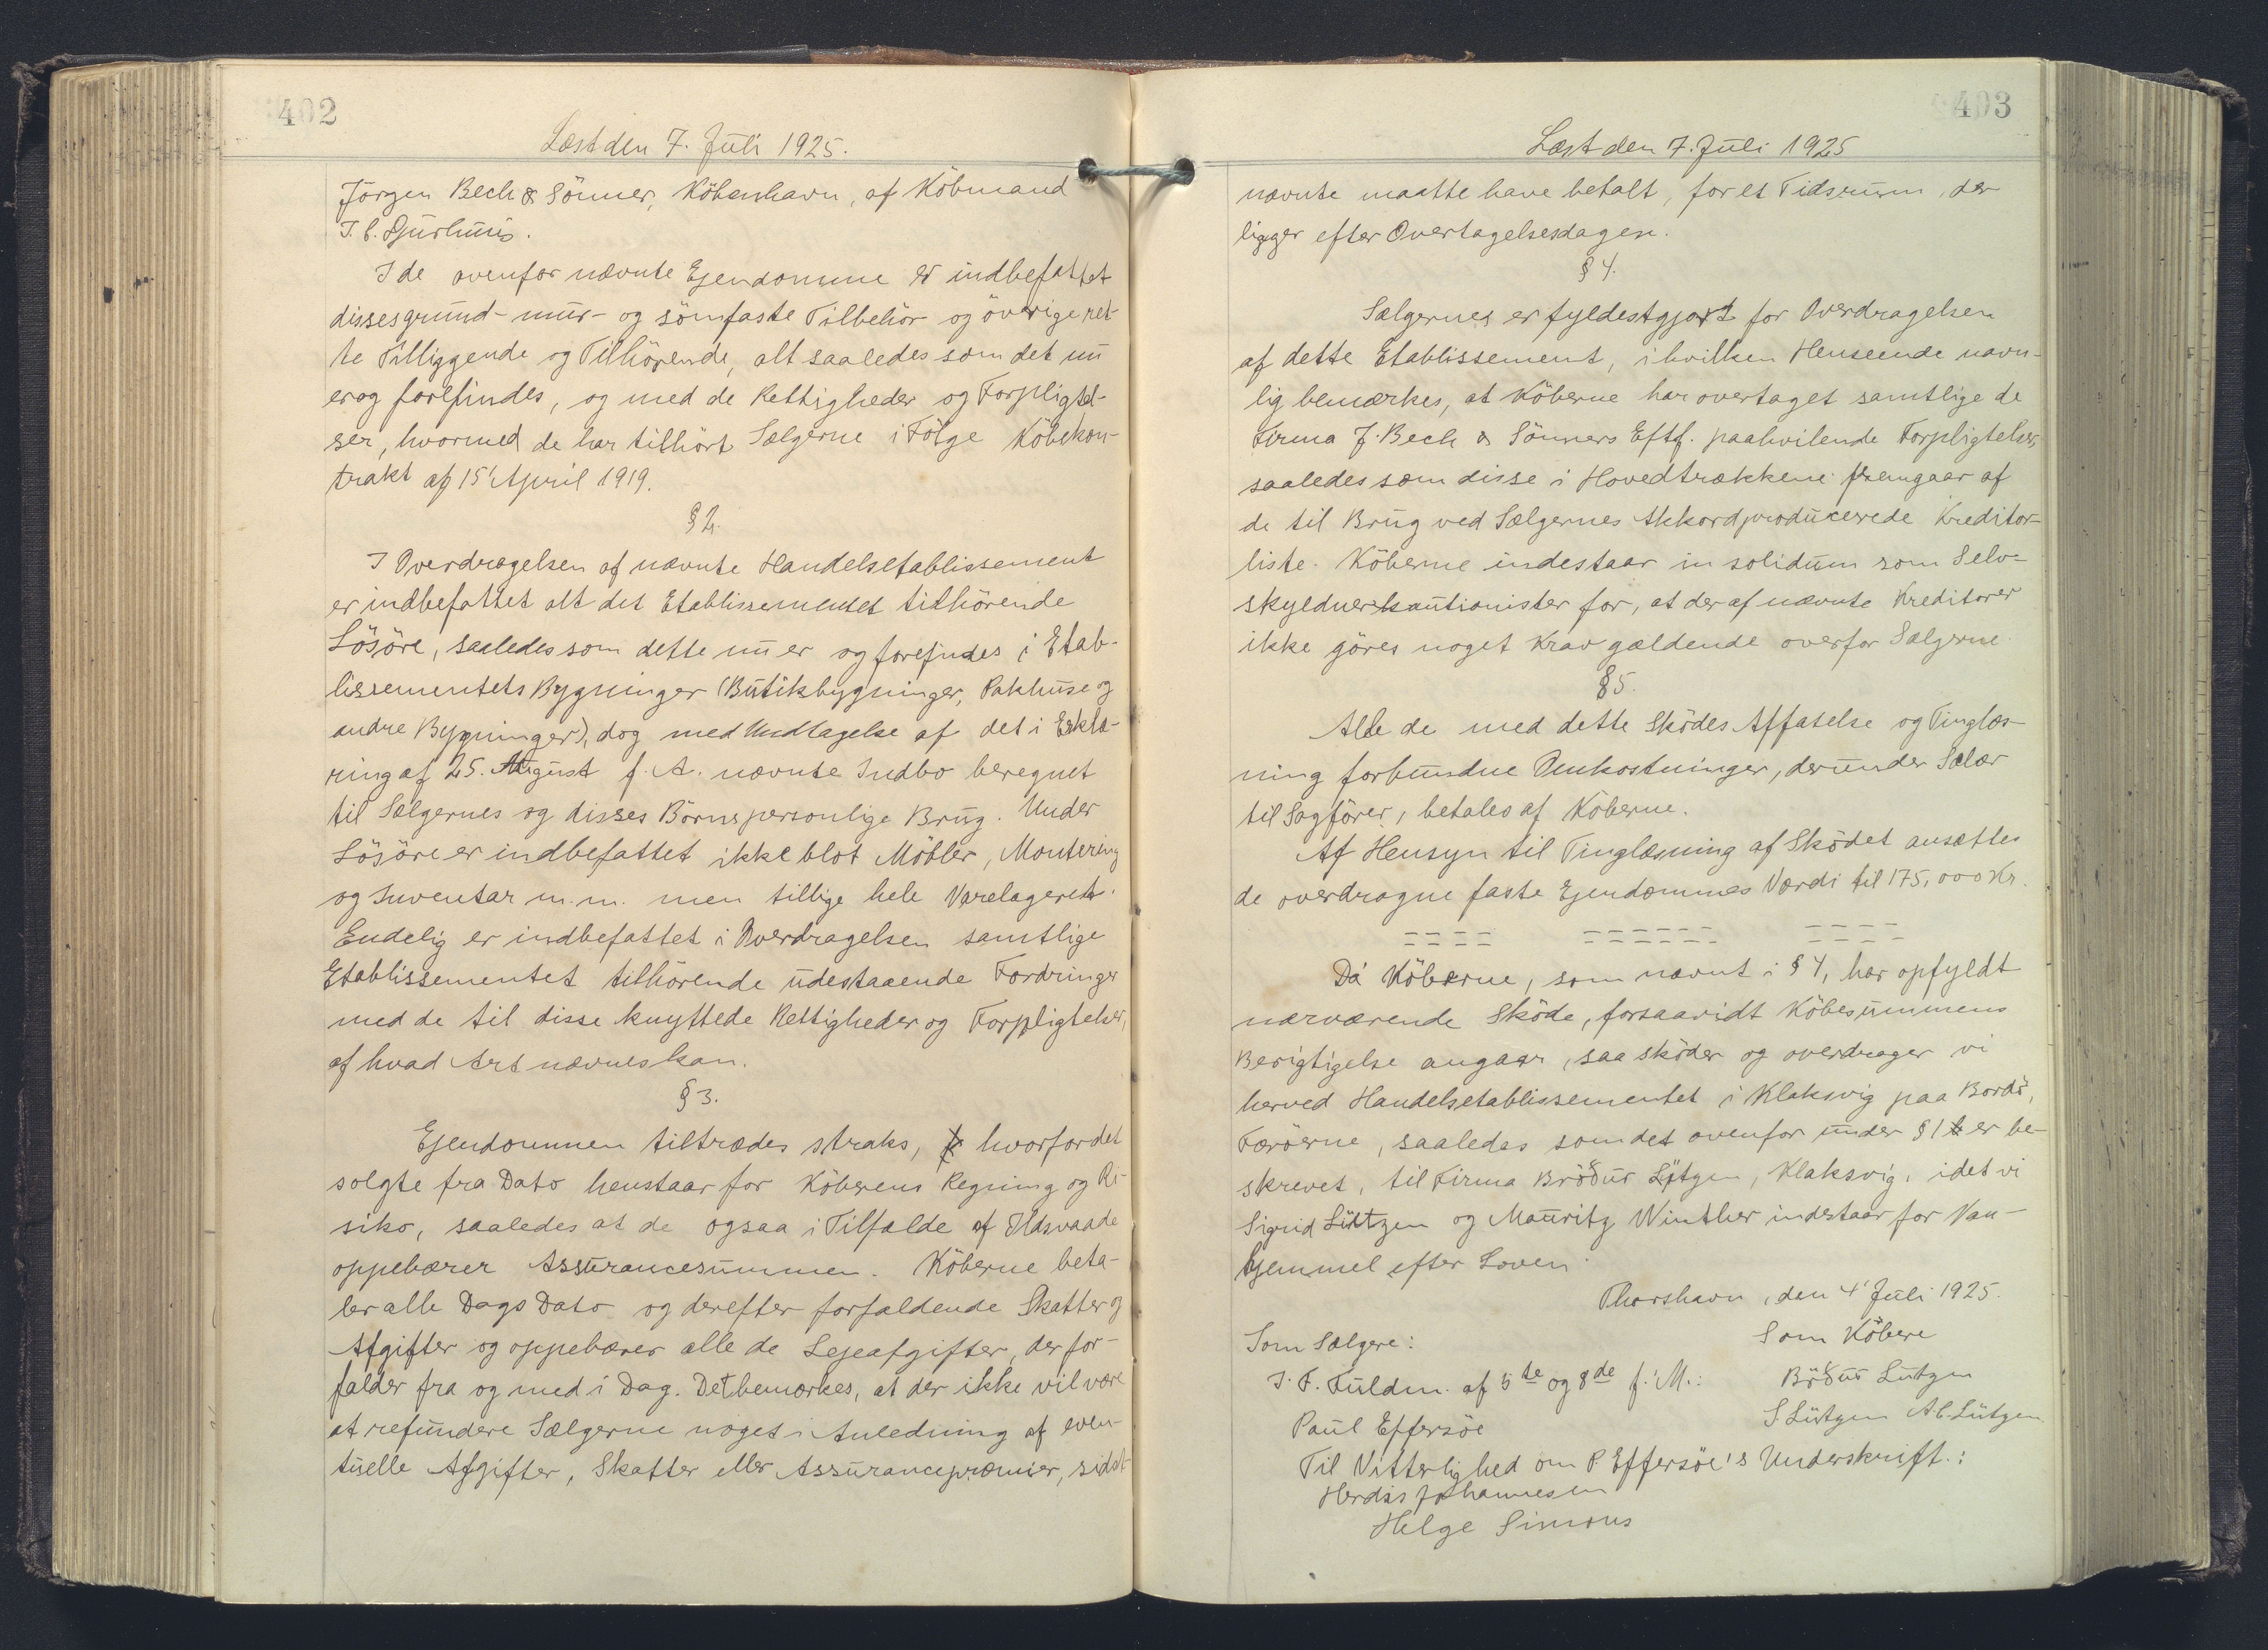 402
Læst den 7. Juli 1925.
Jörgen Bech & Sönner, Köbenhavn, af Köbmand
J. C. Djurhuus.
I de ovenfor nævnte Ejendomme er indbefattet
disses grund- mur- og sömfaste Tilbehör og övrige ret-
te Tilliggende og Tilhörende, alt saaledes som det nu
er og forefindes, og med de Rettigheder og Forpligtel-
ser, hvormed de har tilhört Sælgerne i Fölge Köbekon-
trakt af 15' April 1919.
§ 2.
I Overdragelsen af nævnte Handelsetablissement
er indbefattet alt det Etablissementet tilhörende
Lösöre, saaledes som dette nu er og forefindes i Etab-
lissementets Bygninger (Butiksbygninger, Pakhuse og
andre Bygninger), dog med Undtagelse af det i Erklæ-
ring af 25. August f. A. nævnte Indbo beregnet
til Sælgernes og disses Börns personlige Brug. Under
Lösöre er indbefattet ikke blot Möbler, Montering
og Inventar m.m. men tillige hele Varelageret.
Endelig er indbefattet i Overdragelsen samtlige
Etablissementet tilhörende udestaaende Fordringer
med de til disse knyttede Rettigheder og Forpligtelser,
af hvad Art nævnes kan.
§ 3.
Ejendommen tiltrædes straks, hvorfor det
solgte fra Dato henstaar for Köberens Regning og Ri-
siko, saaledes at de ogsaa i Tilfælde af Ildsvaade
oppebærer Assurancesummen. Köberne beta-
ler alle Dags Dato og derefter forfaldende Skatter og
Afgifter og oppebærer alle de Lejeafgifter, der for-
falder fra og med i Dag. Det bemærkes, at der ikke vil være
at refundere Sælgerne noget i Anledning af even-
tuelle Afgifter, Skatter eller Assurancepræmier, sidst
403
Læst den 7. Juli 1925
nævnte maatte have betalt, for et Tidsrum, der
ligger efter Overtagelsesdagen.
§ 4.
Sælgernes er fyldestgjort for Overdragelsen
af dette Etablissement, i hvilken Henseende navn-
lig bemærkes, at Köberne har overtaget samtlige de
Firma J. Bech & Sönners Eftf. paahvilende Forpligtelser,
saaledes som disse i Hovedtrækkene fremgaar af
de til Brug ved Sælgernes Akkord producerede Kreditor-
liste. Köberne indestaar in solidum som Selv-
skyldnerkautionister for, at der af nævnte Kreditorer
ikke göres noget Krav gældende overfor Sælgerne
§ 5.
Alle de med dette Sködes Affatelse og Tinglæs-
ning forbundne Omkostninger, derunder Salær
til Sagförer, betales af Köberne.
Af Hensyn til Tinglæsning af Sködet ansættes
de overdragne faste Ejendommes Værdi til 175,000 Kr.
Da Köberne, som nævnt i § 4, har opfyldt
nærværende Sköde, forsaavidt Köbesummens
Berigtigelse angaar, saa sköder og overdrager vi
herved Handelsetablissementet i Klaksvig paa Bordö,
Færöerne, saaledes som det ovenfor under § 1 er be-
skrevet, til Firma Bröður Lützen, Klaksvig, idet vi
Sigrid Lützen og Mauritz Winther indestaar for Van-
hjemmel efter Loven.
Thorshavn, den 4' Juli 1925.
Som Sælgere: Som Köbere
I. F. Fuldm. af 5te og 8de f. M.: Bröður Lützen
Paul Effersöe S. Lützen A. C. Lützen
Til Vitterlighed om P. Effersöe's Underskrift.:
Herdis Johannesen
Helge Simons